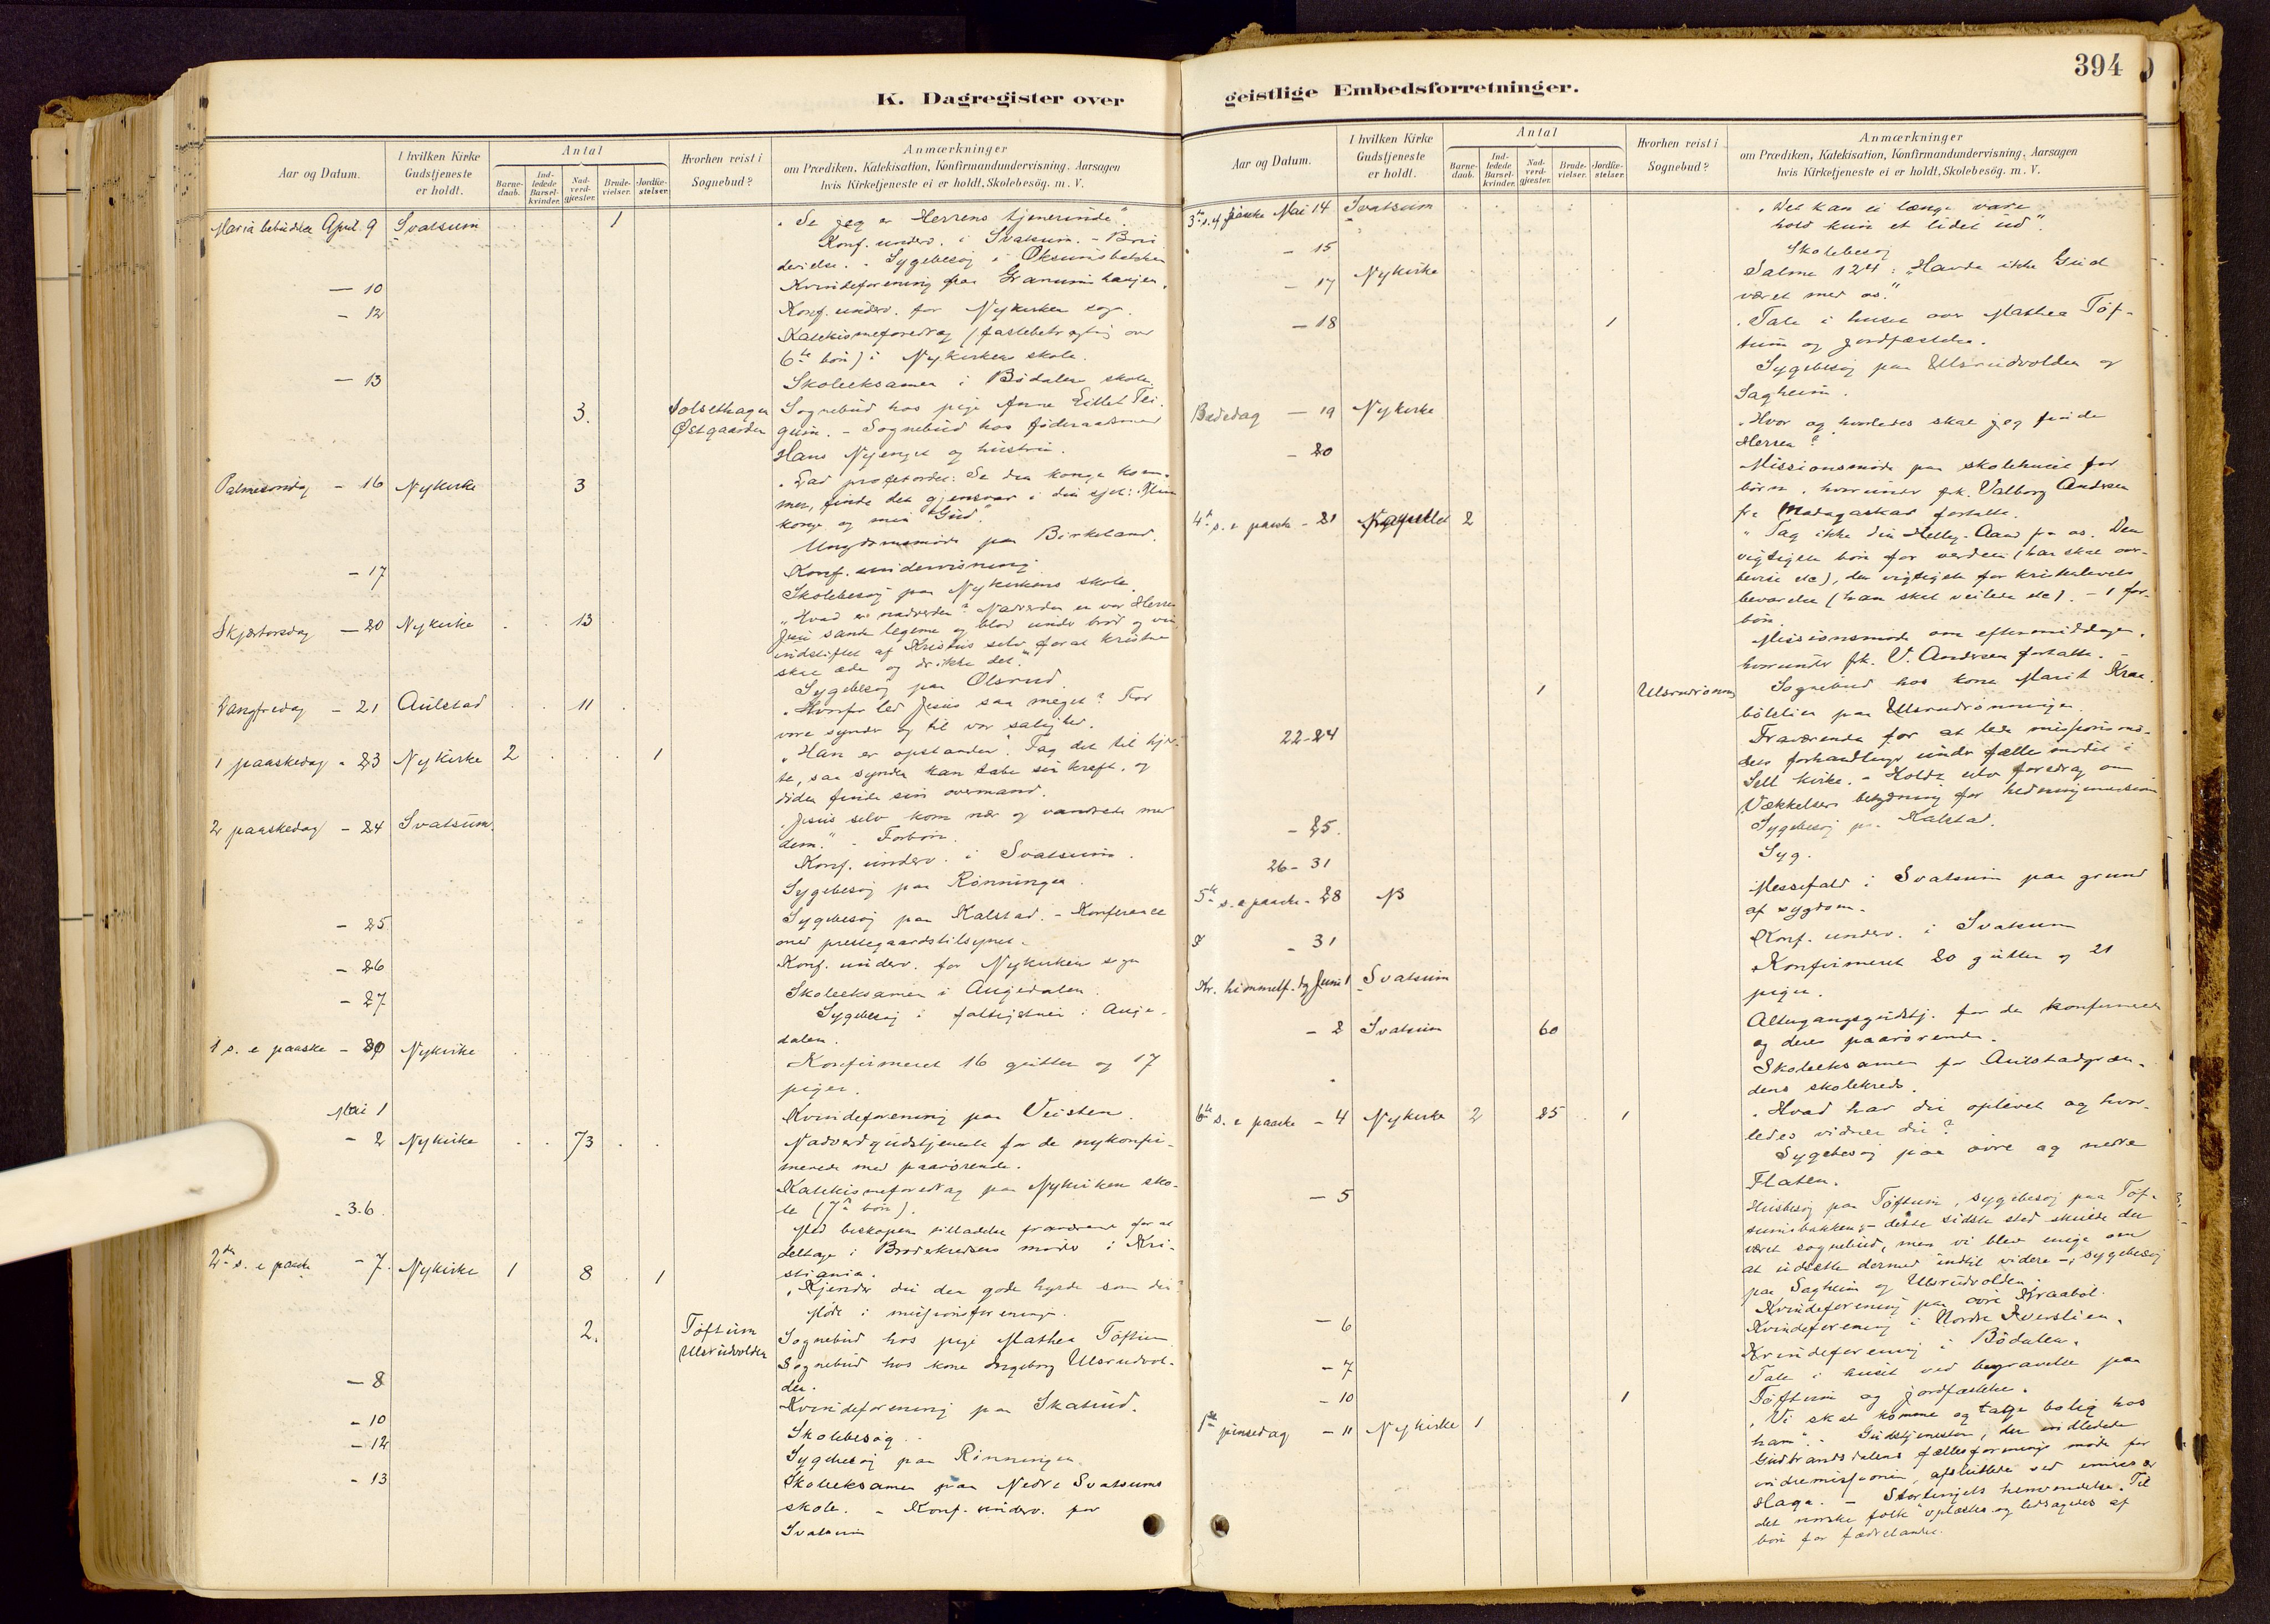 K. Dagregister over
Aar og Datum.
I hvilken Kirke Gudstjeneste er holdt.
Antal
Barne-daab.
Ind-ledede Barsel-kvinder.
Nad-verd-gjæster.
Brude-vielser.
Jordfæ-stelser.
Hvorhen reist i Sognebud?
Anmærkninger
om Prædiken, Katekisation, Konfirmandundervisning, Aarsagen
hvis Kirketjeneste ei er holdt, Skolebesög. m. V.
Maria bebudelse April 9 Svatsum 1 "Se jeg er Herrens tjenerinde".
Konf. underv. i Svatsum. - Bru
devielse. - Sygebesøg i
- 10 Kvindeforening paa Granumhaugen.
- 12 Konf. underv. for Nykirken sogn.
Katekismeforedrag (fastebetragtning over
6te bøn) i Nykirkens skole.
- 13 Skoleeksamen i Bødalen skole.
3. Solsethagen Sognebud hos pige Anne Eillet Tei-
Østgaarden gum. - Sognebud hos føderaadsmand
Hans Nyenget og hustru.
Palmesøndag - 16 Nykirke 3 "Lad profetordet: Se din konge kom-
mer, finde det gjensvar i din sjel: Min
konge og min Gud".
Ungdomsmøde paa Birkeland.
- 17 Konf. undervisning
Skolebesøg paa Nykirkens skole.
Skjærtorsdag - 20 Nykirke 13 "Hvad er nadverden? Nadverden er vor Herre
Jesu sande legeme og blod under brød og vin
indstiftet af Kristus selv for at kristne
skal æde og drikke det."
Sygebesøg paa Olsrud.
Langfredag - 21 Aulstad 11 "Hvorfor led Jesus saa meget? For
vore synder og til vor salighed.
1 paaskedag - 23 Nykirke 2 1 "Han er opstanden". Tag det til hjer-
te, saa synden kan tabe sin kraft, og
døden finde sin overmand.
2 paaskedag - 24 Svatsum. "Jesus selv kom nær og vandrede med
dem." - Forbøn.
Konf. underv. i Svatsum.
Sygebesøg paa Rønningen.
- 25 Sygebesøg paa Kalstad. - Konferance
med prestegaardstilsynet.
- 26 Konf. underv. for Nykirken sogn
- 27 Skoleeksamen i Augedalen.
Sygebesøg i fattigstuen i Auge-
dalen.
1 s. e paaske - 30 Nykirke Konfirmeret 16 gutter og 17
piger.
Mai 1 Kvindeforening paa Veisten.
- 2 Nykirke 73 Nadverdgudstjeneste for de nykonfir-
merede med paarørende.
Katekismeforedrag paa Nykirken sko-
le (7de bøn).
- 3-6. Med biskopens tilladelse fraværende for at
deltage i Broderkredsens møder i Kri-
stiania.
2den s. e paaske - 7. Nykirke 1 8 1 "Kjender du den gode hyrde som din?
Møde i missionsforeningen.
2. Toftum Sognebud hos pige Mathea Toftum
Ulsrudvolden Sognebud hos kone Ingeborg Ulsrudvol-
den.
- 8 Kvindeforening paa Skarud.
- 10 Skolebesøg.
- 12 Sygebesøg paa Rønningen.
- 13 Skoleeksamen paa Nedre Svatsums
skole. - Konf. underv. for
Svatsum
394
geistlige Embedsforretninger.
Aar og Datum.
I hvilken Kirke Gudstjeneste er holdt.
Antal
Barne-daab.
Ind-ledede Barsel-kvinder.
Nad-verd-gjæster.
Brude-vielser.
Jordfæ-stelser.
Hvorhen reist i Sognebud?
Anmærkninger
om Prædiken, Katekisation, Konfirmandundervisning, Aarsagen
hvis Kirketjeneste ei er holdt, Skolebesög. m. V.
3de s. e paaske Mai 14 Svatsum "Det kan ei længe vare
hold kun et lidet ud".
- 15 Skolebesøg
- 17 Nykirke Salme 124: "Havde ikke Gud
været med os."
- 18 1 Tale i huset over Mathea Tøf-
tum og jordfæstelse.
Sygebesøg paa Ulsrudvolden og
Sagheim.
Bededag - 19 Nykirke "Hvor og hvorledes skal jeg finde
Herren?"
- 20 Missionsmøde paa skolehuset for
børn, hvorunder frk. Valborg Andersen
fra Madagaskar fortalte.
4de s. e paaske - 21 2 "Tag ikke din Hellig-Aand fra os. Den
vigtigste bøn for verden (han skal over-
bevise etc), den vigtigste for kristenlivets
bevarelse (han skal veilede etc). - 1 for-
bøn.
Missionsmøde om eftermiddagen,
hvorunder frk. V. Andersen fortalte.
1 Ulsrudrønning Sognebud hos kone Marit Kraa-
bølslien paa Ulsrudrønningen.
22-24 Fraværende for at lede missionsmø-
dets forhandlinger under fællesmødet i
Sell kirke. - Holdt selv foredrag om
Vækkelsers betydning for hedningemission
- 25. Sygebesøg paa Kalstad.
26-31 Syg.
5te s. e paaske - 28 Messefald i Svatsum paa grund
af sygdom.
- 31 Konf. underv. i Svatsum
Kr. himmelf. dg Juni 1 Svatsum Konfirmeret 20 gutter og 21
piger.
- 2 Svatsum 60 Altergangsgudstj. for de konfirmerede
og deres paarørende.
Skoleeksamen for Aulstadgren-
dens skolekreds.
6te s. e paaske - 4 Nykirke 2 25 1 "Hvad har du oplevet og hvor-
ledes vidner du?
Sygebesøg paa øvre og nedre
Flaten.
- 5 Husbesøg paa Tøftum, sygebesøg paa Tøf-
tumsbakken; - dette sidste sted skulde der
været sognebud, men vi blev enige om
at udsætte dermed indtil videre -, sygebesøg
paa Sagheim og Ulsrudvolden.
Kvindeforening paa øvre Kraabøl.
- 6 Kvindeforening i Nordre Iverslien.
- 7 Kvindeforening i Bødalen.
- 10 1 Tale i huset ved begravelse paa
Tøftum og jordfæstelse.
1ste pinsedag - 11 Nykirke 1 "Vi skal komme og tage bolig hos
ham". - Gudstjenesten, der indledede
Gudbrandsdalens fællesforenings møde for
indremissionen, afsluttedes ved emissær
Haga. - Stortingets henvendelse "Til
det norske folk" oplæstes og ledsagedes af
bøn for fædrelandet.